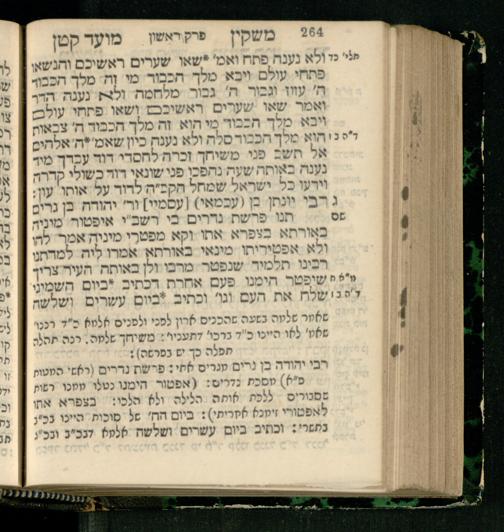 264 משקין פרק ראשון מועד קטן
תלי' כד ולא נענה פתח ואמ' *שאו שערים ראשיכם והנשאו
פתחי עולם ויבא מלך הכבוד מי זה מלך הכבוד
ה' עזוז וגבור ה' גבור מלחמה ולא נענה הדר
ואמר שאו שערים ראשיכם ושאו פתחי עולם
ויבא מלך הכבוד מי הוא זה מלך הכבוד ה' צבאות
ד"ה ב ו הוא מלך הכבוד סלה ולא נענה כיון שאמ' *ה' אלהים
אל תשב פני משיחך זכרה לחסדי דוד עבדך מיד
נענה באותה שעה נהפכו פני שונאי דוד כשולי קדרה
וידעו כל ישראל שמחל הקב"ה לדוד על אותו עון:
ג רבי יונתן בן (עכמאי) [עסמיי] ור' יהודה בן גרים
שם תנו פרשת נדרים בי רשב"י איפטור מיניה
באורתא בצפרא אתו וקא מפטרי מיניה אמר להו
ולא אפטיריתו מינאי באורתא אמרו ליה למדתנו
רבינו תלמיד שנפטר מרבו ולן באותה העיר צריך
מ"א ח שיפטר הימנו פעם אחרת דכתיב *ביום השמיני
ד"ה ב ז שלח את העם וגו' וכתיב *ביום עשרים ושלשה
שאמר שלמה בשעה שהכניס ארון לפני ולפנים אלמא כ"ד רננו'
שאמ' לאו היינו כ"ד ברכו' דתענית: משיחך שלמה. רנה תהלה
תפלה כך יש בפרשה):
רבי יהודה בן גרים מגרים אתי: פרשת נדרים (ראשי המטות
ס"א) מסכת נדרים: (אפטור הימנו נטלו ממנו רשות
שסבורים ללכת אותה הלילה ולא הלכו: בצפרא אתו
לאפטורי זימנא אחריתי): ביום הח' של סוכות היינו בכ"ב
בתשרי: וכתיב ביום עשרים ושלשה אלמא דבכ"ב ובכ"ג